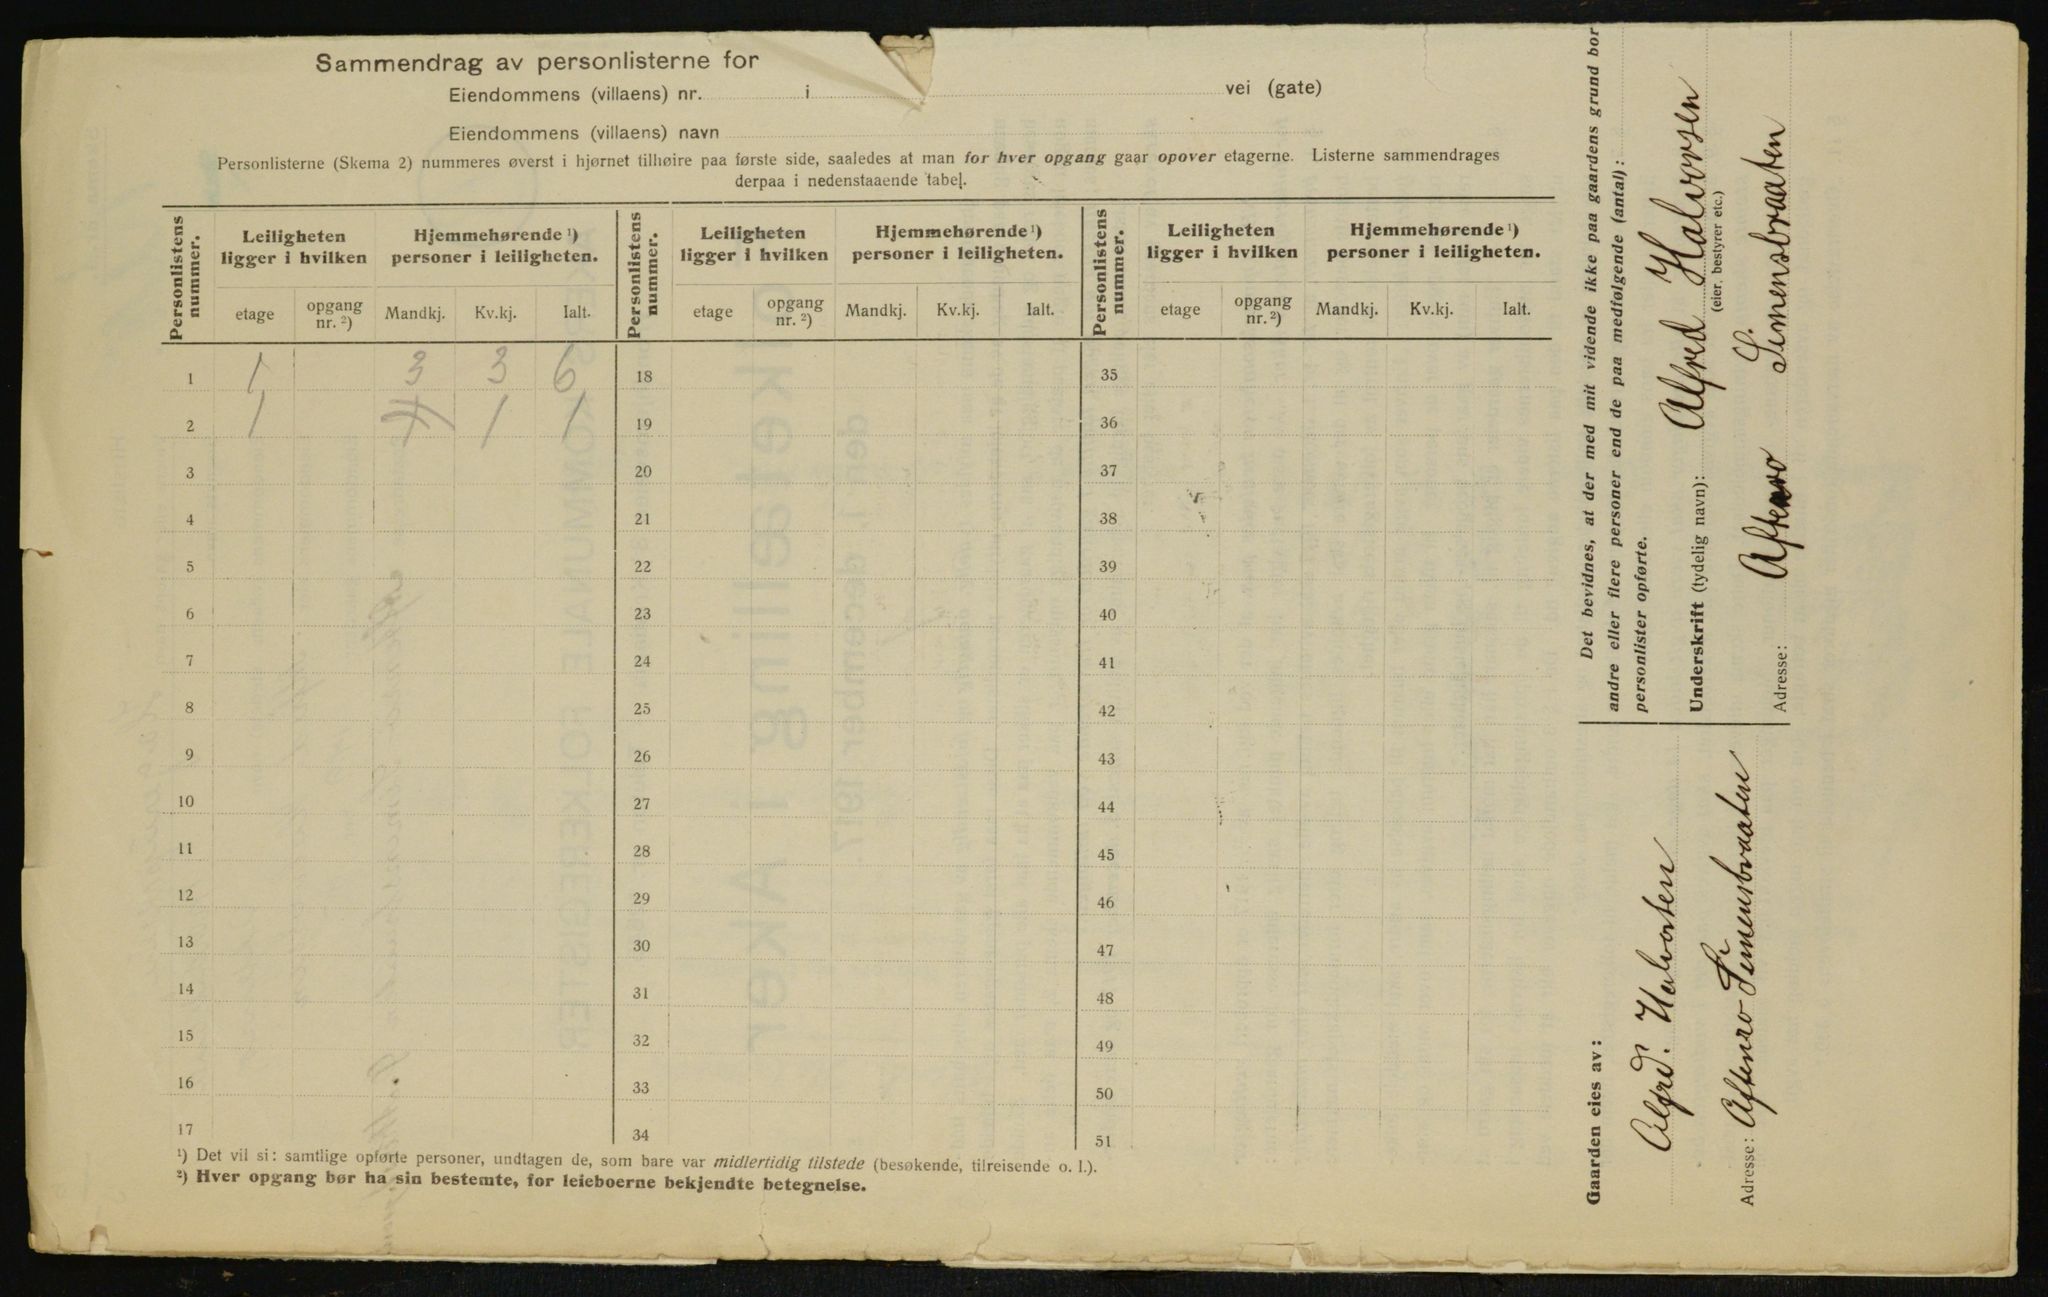 Sammendrag av personlisterne for
Eiendommens (villaens) nr. i vei (gate)
Eiendommens (villaens) navn
Personlisterne (Skema 2) nummeres øverst i hjørnet tilhøire paa første side, saaledes at man for hver opgang gaar opover etagerne. Listerne sammendrages
derpaa i nedenstaaende tabel.
Personlistens nummer. Leiligheten ligger i hvilken Hjemmehørende ¹) personer i leiligheten. Personlistens nummer. Leiligheten ligger i hvilken Hjemmehørende ¹) personer i leiligheten. Personlistens nummer. Leiligheten ligger i hvilken Hjemmehørende ¹) personer i leiligheten.
etage opgang nr. ²) Mandkj. Kv.kj. Ialt. etage opgang nr. ²) Mandkj. Kv.kj. Ialt. etage opgang nr. ²) Mandkj. Kv.kj. Ialt.
1 1 3 3 6 18 35
2 1 1 1 19 36
3 20 37
4 21 38
5 22 39
6 23 40
7 24 41
8 25 42
9 26 43
10 27 44
11 28 45
12 29 46
13 30 47
14 31 48
15 32 49
16 33 50
17 34 51
¹) Det vil si: samtlige opførte personer, undtagen de, som bare var midlertidig tilstede (besøkende, tilreisende o. l.).
²) Hver opgang bør ha sin bestemte, for leieboerne bekjendte betegnelse.
Gaarden eies av:
Alfred. Halvorsen
Adresse: Aftenro Simensbraaten
Det bevidnes, at der med mit vidende ikke paa gaardens grund bor
andre eller flere personer end de paa medfølgende (antal):
personlister opførte.
Underskrift (tydelig navn): Alfred Halvorsen
(eier, bestyrer etc.)
Adresse: Aftenro Simensbraaten